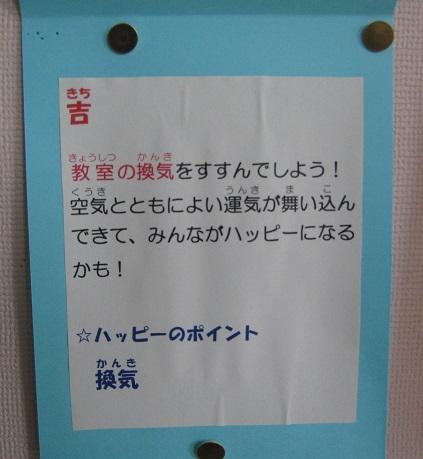 きち
吉
きょうしつ かんき
教室の換気をすすんでしよう！
くうき うんき ま こ
空気とともによい運気が舞い込ん
できて、みんながハッピーになる
かも！
☆ハッピーのポイント
かんき
換気